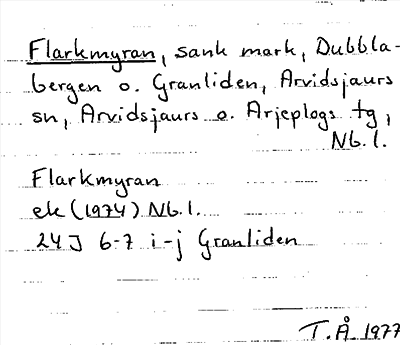 Flarkmyran, sank mark, Dubbla-
bergen o. Granliden, Arvidsjaurs
sn, Arvidsjaurs o. Arjeplogs tg,
Nb. l.
Flarkmyran
ek (1974) Nb. l.
24J 6-7 i-j Granliden
T. Å. 1977